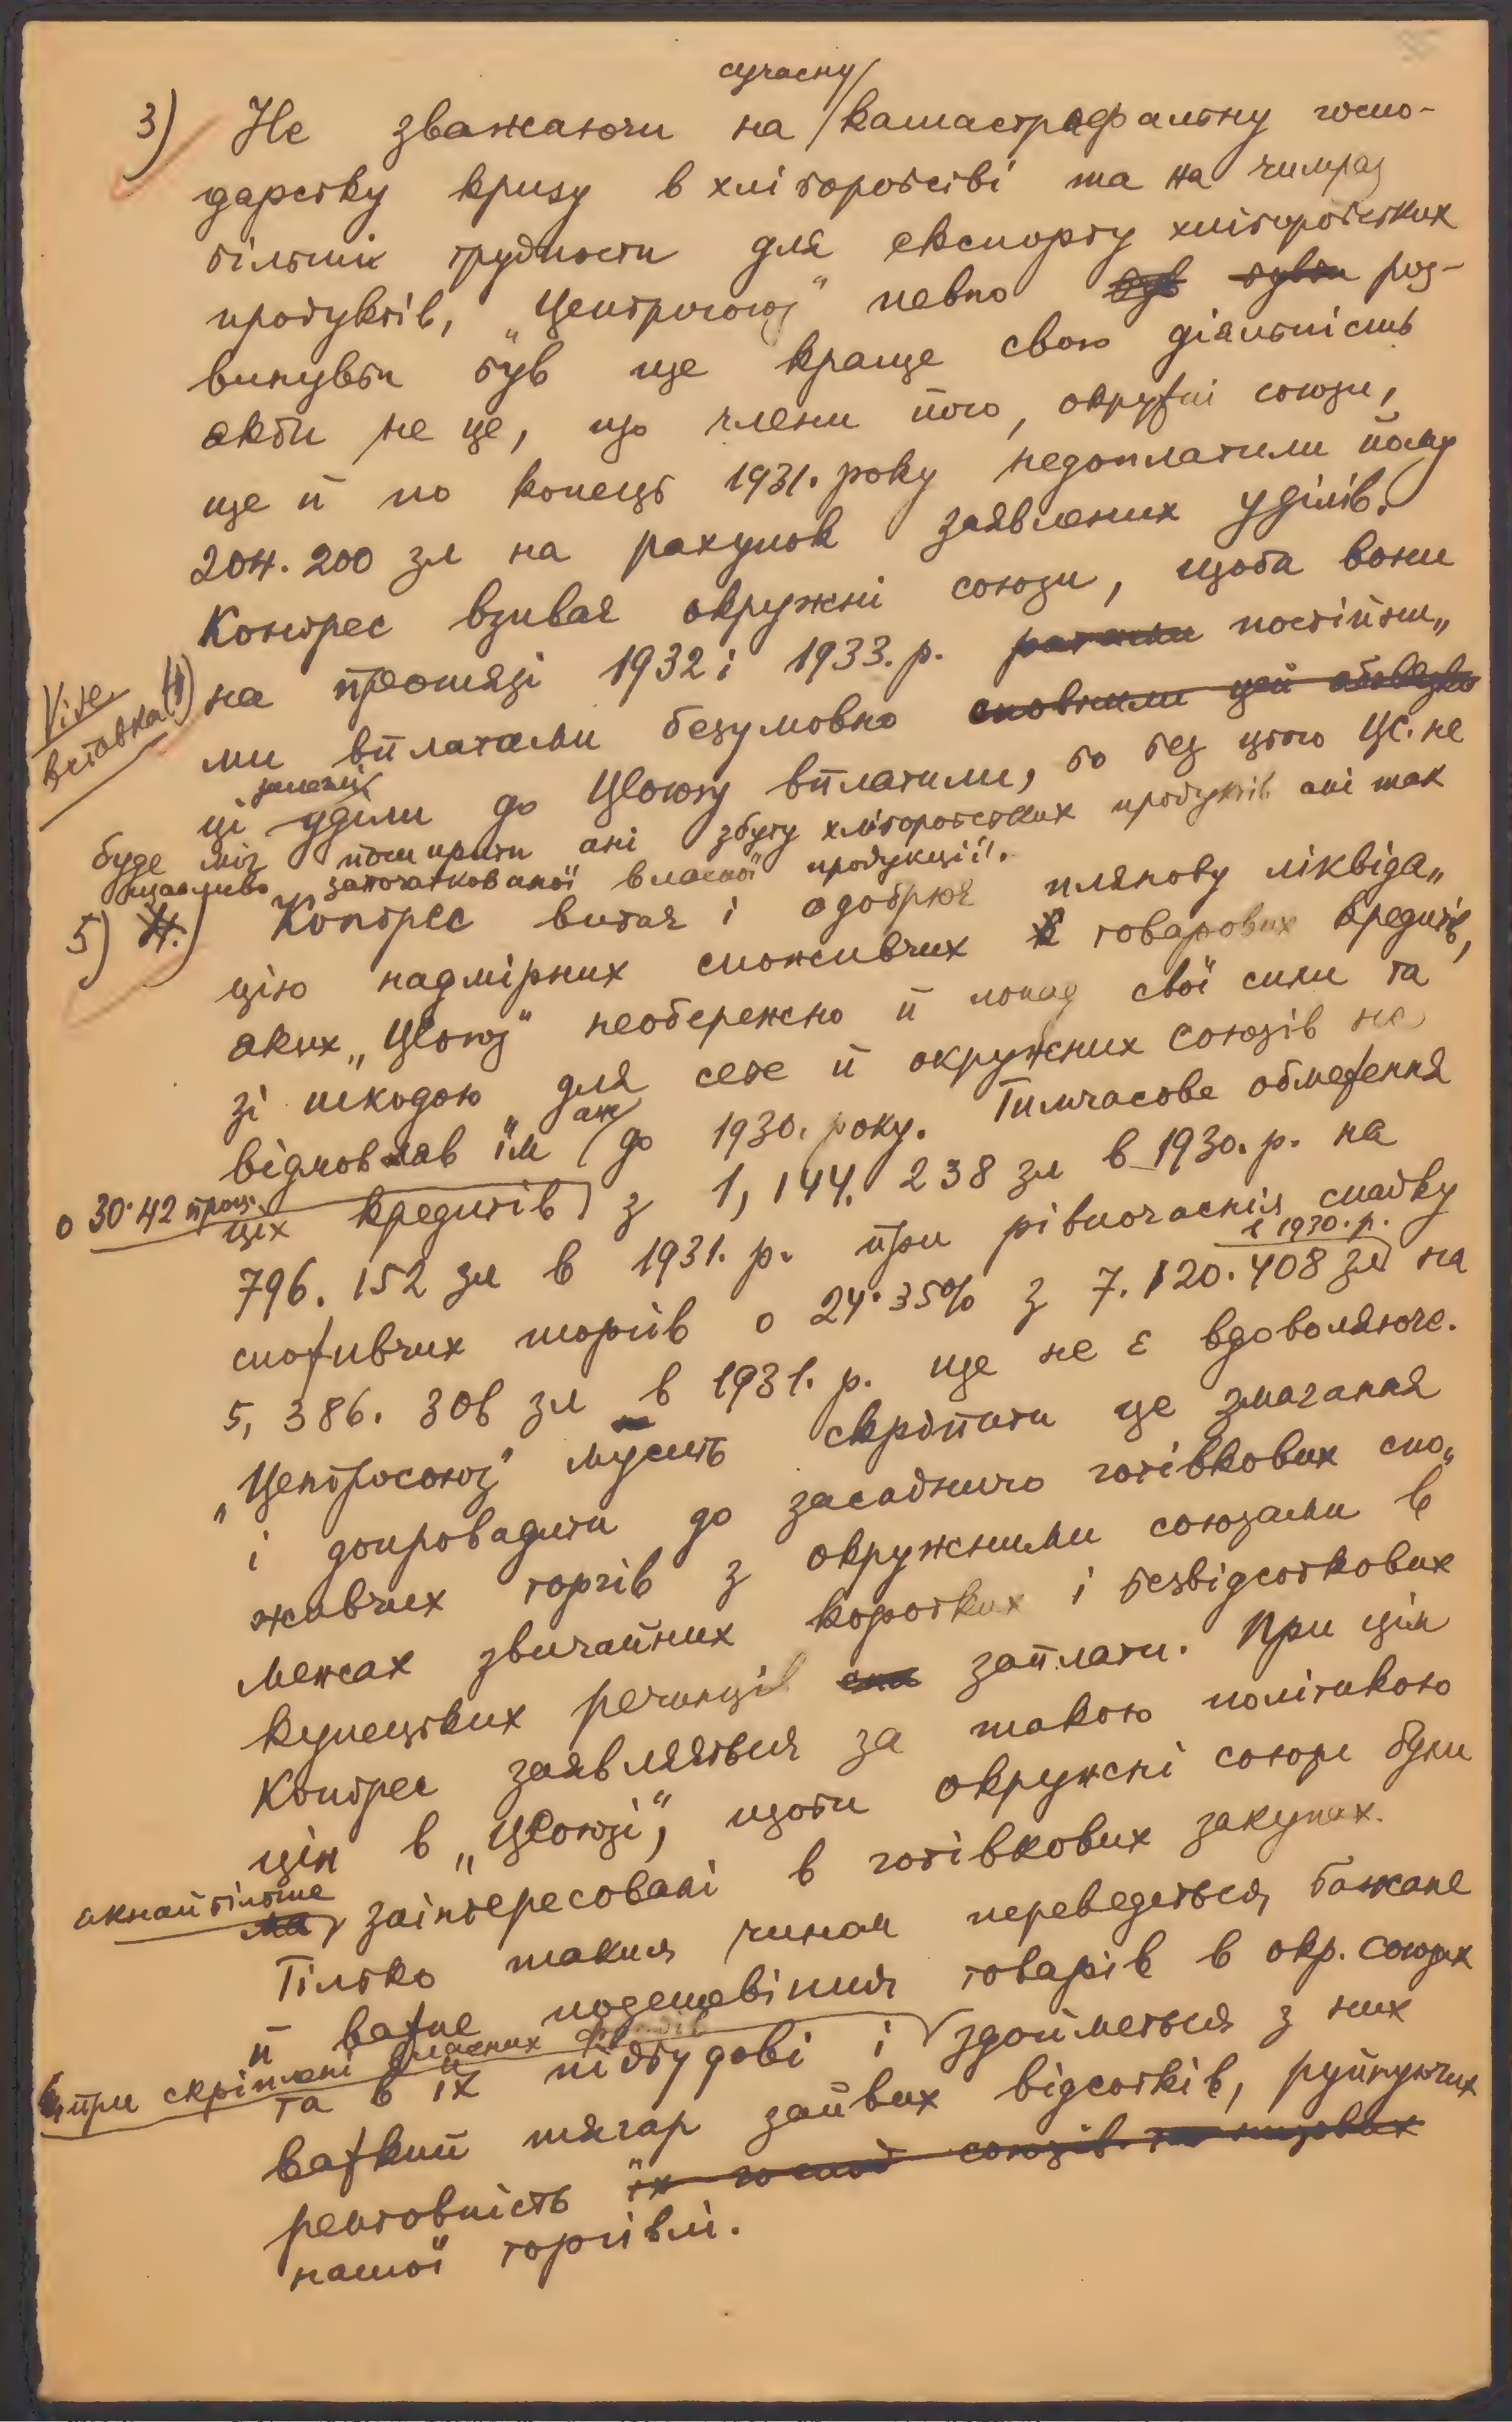 сучасну
3) Не зважаючи на катастрофальну госпо-
дарську кризу в хліборобстві та на чимраз
більші трудности для експорту хліборобських
продуктів, „Центросоюз" певно був бувби роз-
винувби був ще краще свою діяльність
якби не це, що члени його, окружні союзи,
ще й по конець 1931. року недоплатили йому
204.200 зл на рахунок заявлених уділів.
Конгрес взиває окружні союзи, щоби вони
на протязі 1932 і 1933. р. ратами постійни„
Vide
вставка 4)
ми вплатами безумовно сповнили цей обовязок
залеглі
ці уділи до ЦСоюзу вплатили, бо без цього ЦС. не
буде міг поширити ані збуту хліборобських продуктів ані так
щасливо започаткованої власної продукції.
5) 4.) Конгрес витає і одобрює плянову ліквіда„
цію надмірних споживчих товарових кредитів,
яких „ЦСоюз" необережно й понад свої сили та
зі шкодою для себе й окружних союзів не
відмовляв їм аж до 1930. року. Тимчасове обмеження
о 30·42 проц.
цих кредитів з 1,144.238 зл в 1930. р. на
796.152 зл в 1931. р. при рівночаснім спадку
в 1930. р.
споживчих торгів о 24·35% з 7.120.408 зл на
5,386.306 зл в 1931. р. ще не є вдоволяюче.
„Центросоюз" мусить скріпити це змагання
і допровадити до засадничо готівкових спо„
живчих торгів з окружними союзами в
межах звичайних коротких і безвідсоткових
купецьких речинців запл­ати. При цім
Конгрес заявляється за такою політикою
цін в „ЦСоюзі", щоби окружні союзи були
якнайбільше
заінтересовані в готівкових закупах.
Тілько таким чином переведеться бажане
й важне подешевіння товарів в окр. союзах
при скріпленні власних
та в їх підбудові і здойметься з них
важкий тягар зайвих відсотків, руйнуючих
рентовність їх союзів та низових
нашої торгівлі.